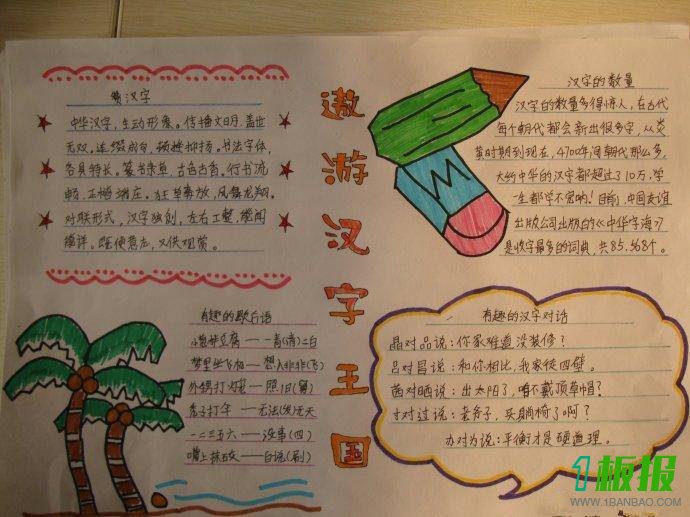 赞汉字
中华汉字，生动形象。传播文明，盖世
无双。连缀成句，顿挫抑扬。书法字体，
各具特长。篆书隶草，古色古香。行书流
畅，正楷端庄。狂草奔放，凤舞龙翔。
对联形式，汉字独创，左右工整，
既使意志，又供观赏。
遨游汉字王国
汉字的数量
汉字的数量多得惊人，在古代
每个朝代都会新出很多字，从炎
黄时期到现在，4700年间朝代那么多，
大约中华的汉字都超过了10万，学
一生都学不完哟！目前，中国友谊
出版公司出版的《中华字海》
是收字最多的词典，共85,568个。
有趣的歇后语
小葱拌豆腐——青(清)二白
梦里坐飞机——想入非非(飞)
外甥打灯笼——照旧(舅)
秃子打伞——无法(发)无天
一二三五六——没事(四)
嘴上抹石灰——白说(刷)
有趣的汉字对话
晶对品说：你家难道没装修？
吕对昌说：和你相比，我家徒四壁。
茜对晒说：出太阳了，咱不戴顶草帽？
寸对过说：老爷子，买躺椅了啊？
办对为说：平衡才是硬道理。
1板报
WWW.1BANBAO.COM